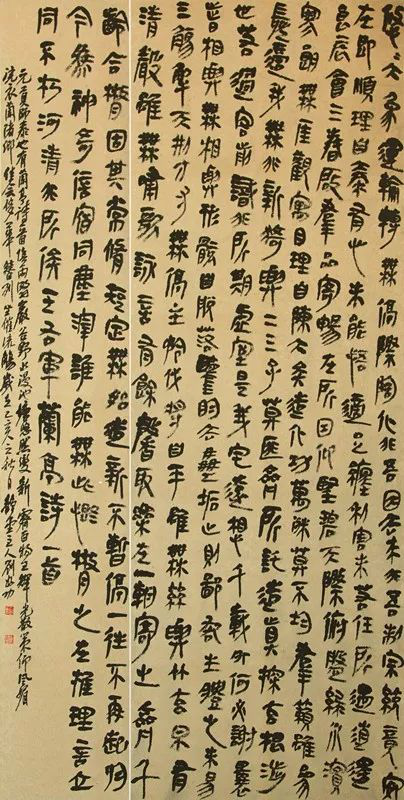 悠悠大象運輪轉無停際陶化非吾因去來非吾制宗統竟安
在即順理自泰有心未能悟適足纏利害未若任所遇逍遙
良辰會三春啟羣品寄暢在所因仰望碧天際俯磐綠水濱
寥朗無厓觀寓目理自陳大矣造化功萬殊莫不均羣籟雖參
差適我無非新猗與二三子莫匪齊所託造真探玄根涉
世若過客前識非所期虛室是我宅遠想千載外何必謝曩
昔相與無相與形骸自脫落鑒明去塵垢止則鄙吝生體之未易
三觴解天刑方寸無停主矜伐將自平雖無絲與竹玄泉有
清聲雖無嘯歌詠言有餘馨取樂在一朝寄之齊千
齡合散固其常脩短定無始造新不暫停一往不再起於
今為神奇信宿同塵滓誰能無此慨散之在推理言立
同不朽河清非所俟王右軍蘭亭詩一首